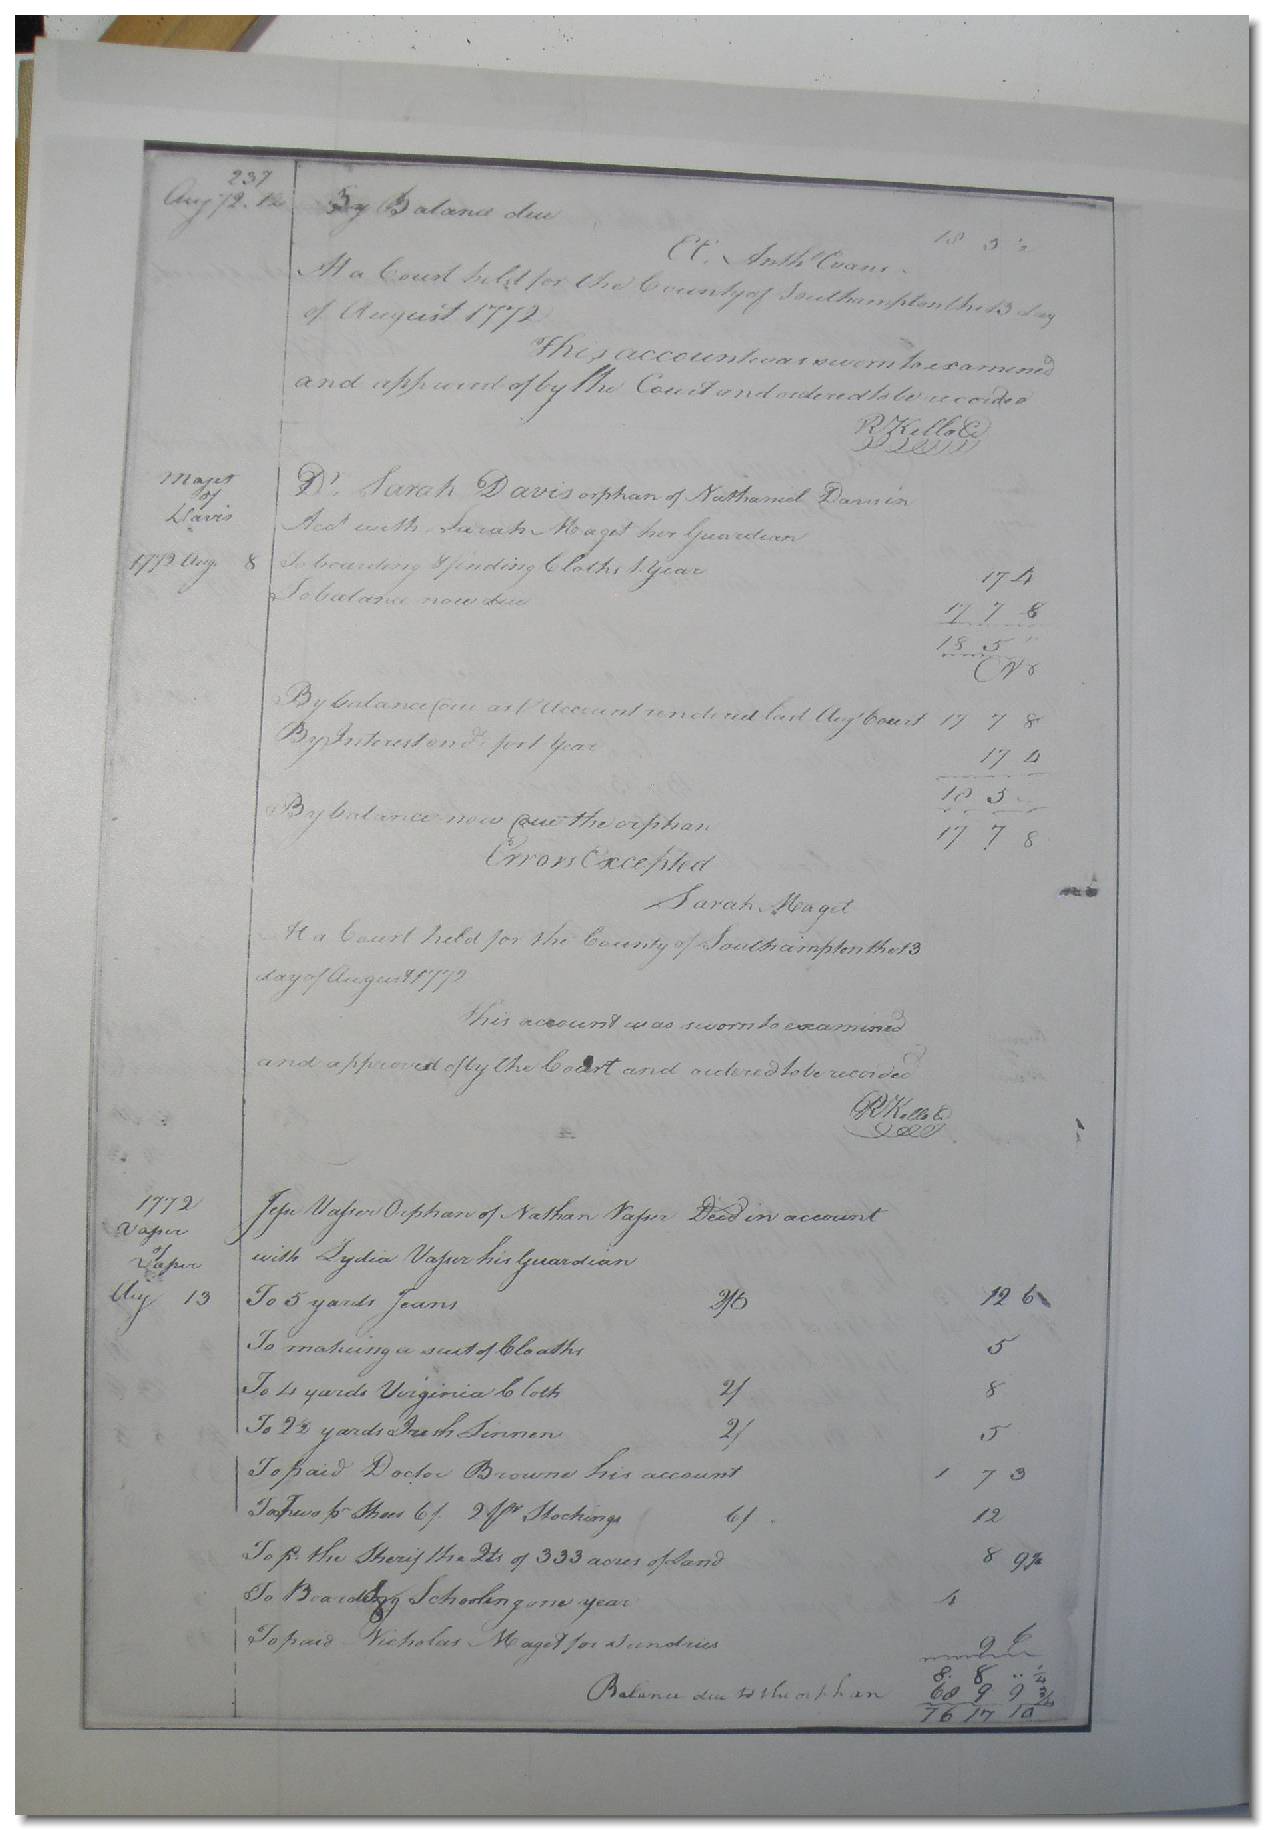 237
Aug 72. 12 By Balance due 18 5 ½
Et. Anth Evans
At a Court held for the County of Southampton the 13 day
of August 1772
This account was sworn to examined
and approved of by the Court and ordered to be recorded
R Kello C
Maget of Davis
Dr. Sarah Davis orphan of Nathaniel Davis in
Acct with Sarah Maget her Guardian
1772 Aug. 8 To boarding & finding Cloths 1 Year 17 4
To balance now due 17 7 8
18 5 "
Cr
By balance due as pr Account rendered last Augt Court 17 7 8
By Interest on do for 1 Year 17 4
18 5
By balance now due the orphan 17 7 8
Errors Excepted
Sarah Maget
At a Court held for the County of Southampton the 13
day of August 1772
This account was sworn to examined
and approved of by the Court and ordered to be recorded
R Kello C
1772
Vasser of Vasser
Jesse Vasser Orphan of Nathan Vasser Decd in account
with Lydia Vasser his Guardian
Aug 13 To 5 yards Jeans 2/6 12 6
To making a suit of Cloaths 5
To 4 yards Virginia Cloth 2/ 8
To 2½ yards Irish Linnen 2/ 5
To paid Doctor Browne his account 1 7 3
To Two pr Shoes 6/. 2 pr Stockings 6/. 12
To pd. the Sherif the Qts of 333 acres of Land 8 9¼
To Boarding Schooling one year 4
To paid Nicholas Maget for sundries 9 6
8. 8 .. ¼
Balance due to the orphan 68 9 9 ¾
76 17 10